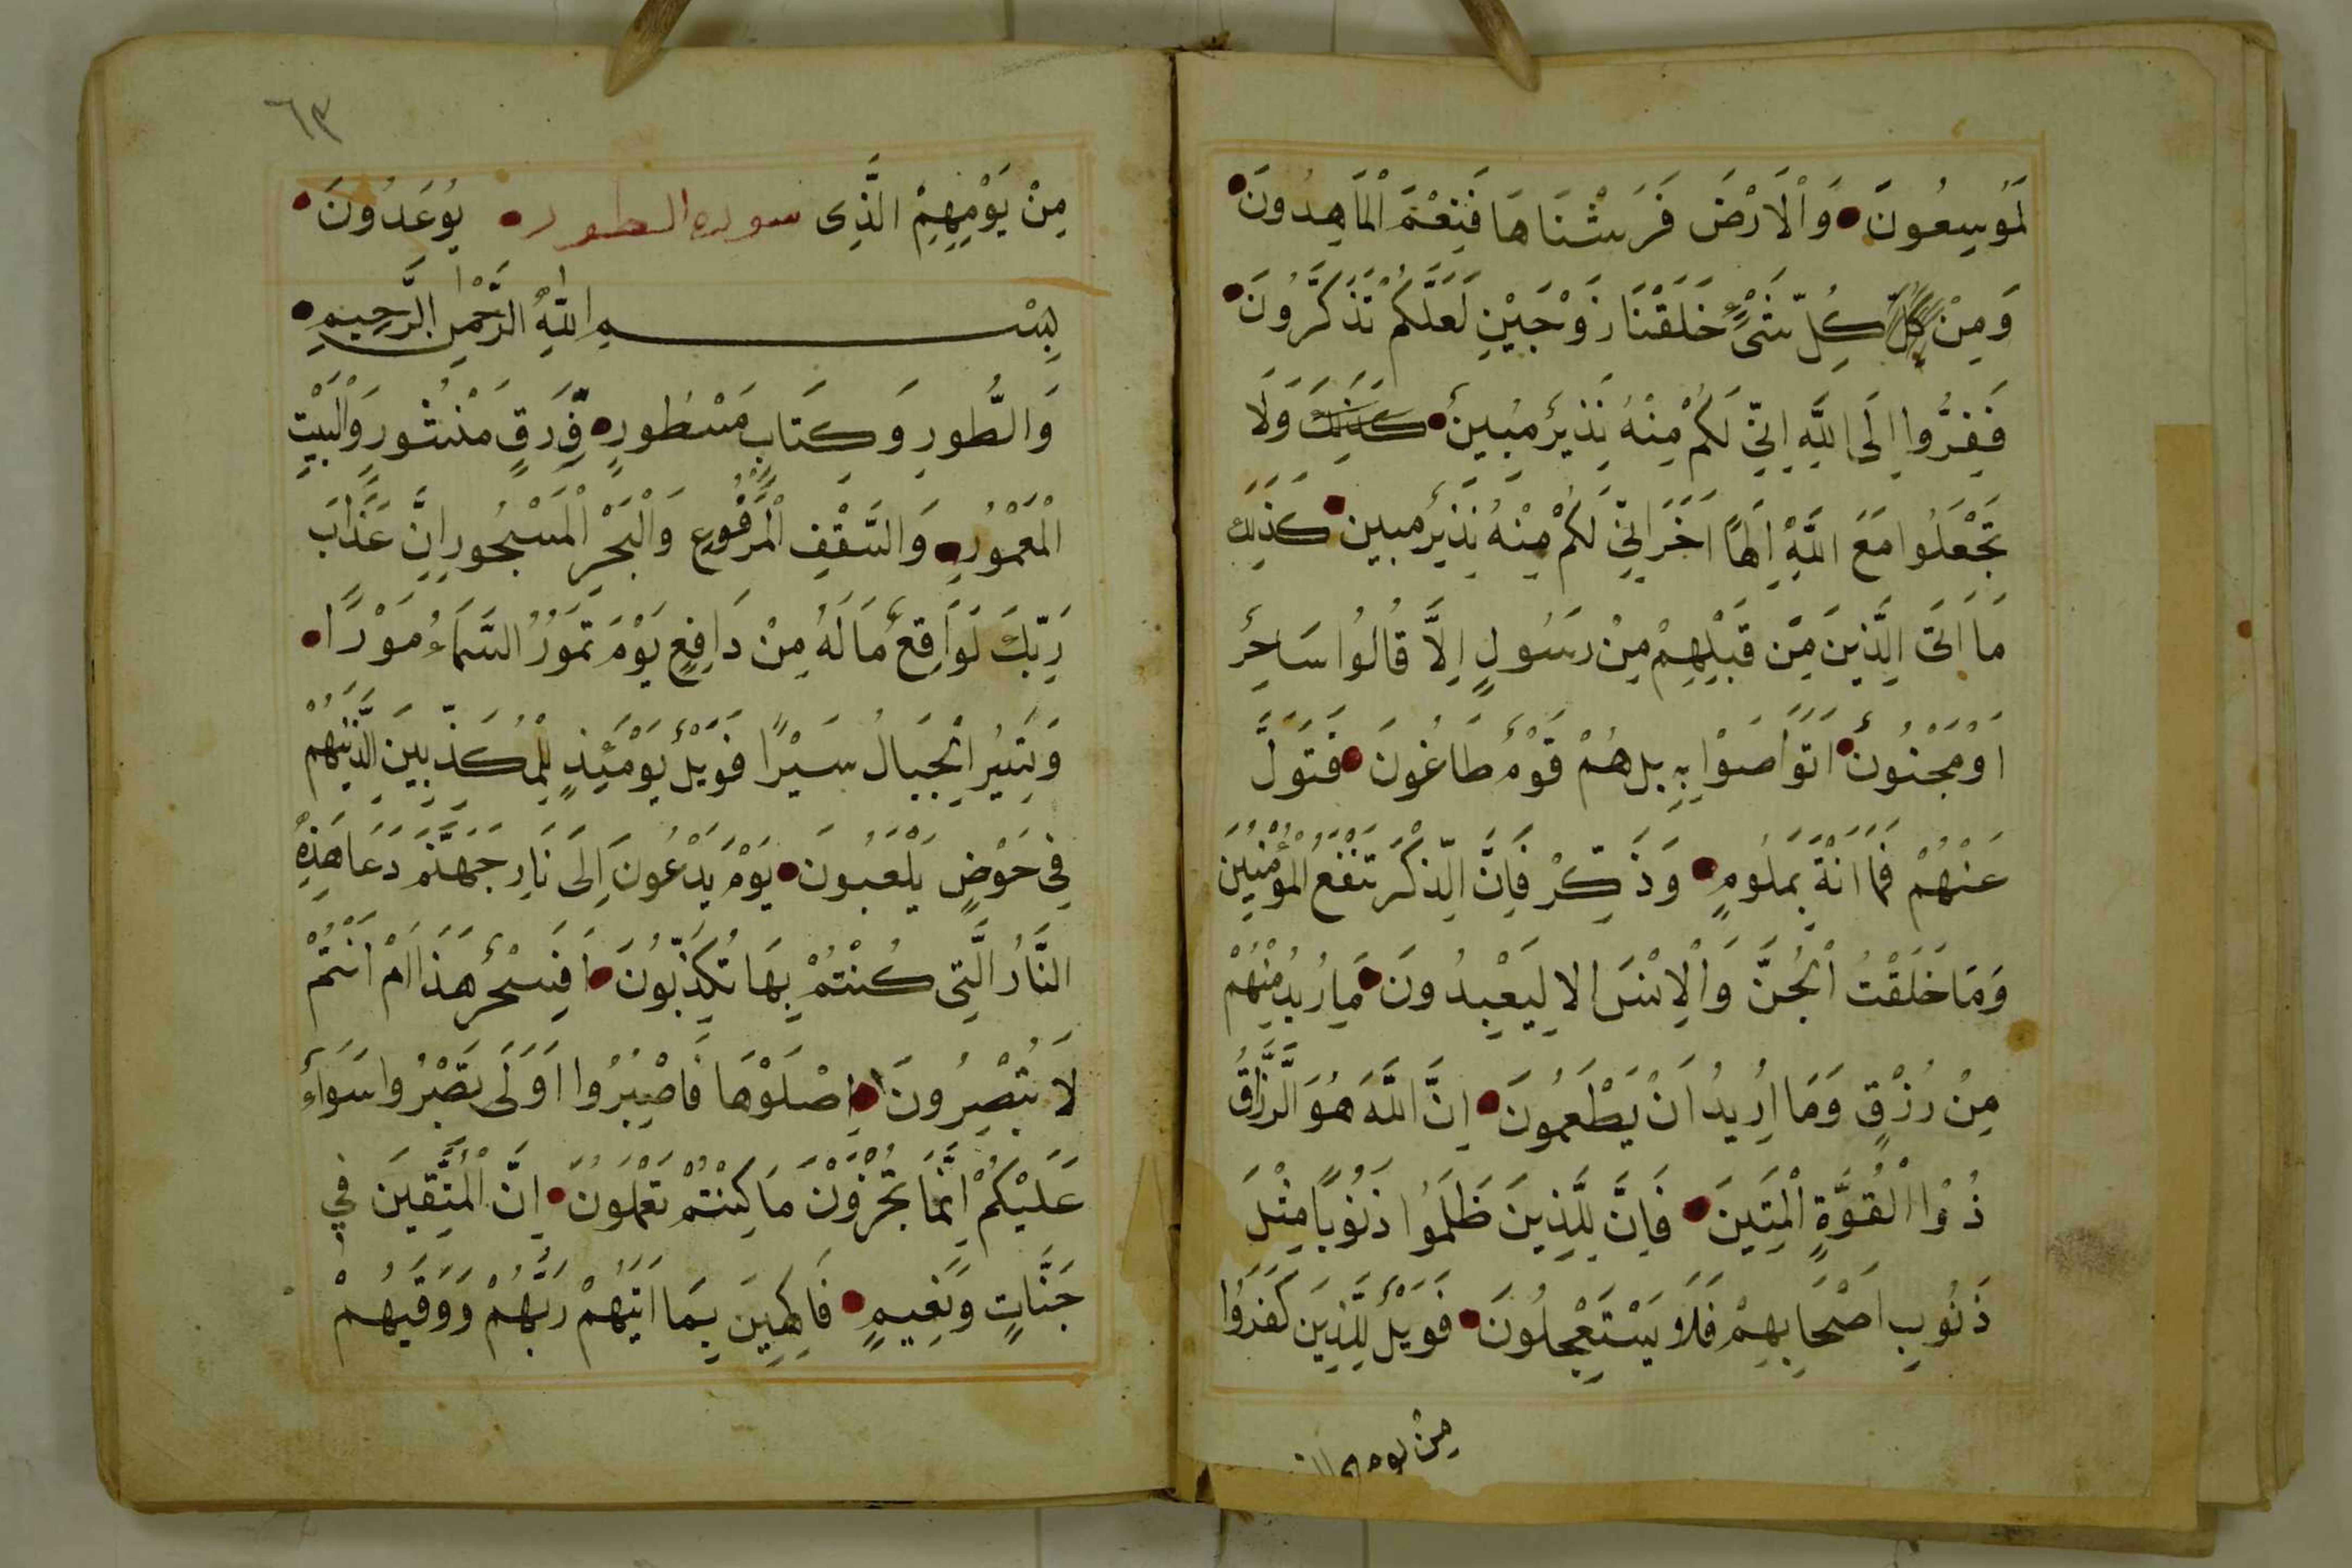 لَمُوسِعُونَ وَالْاَرْضَ فَرَشْنَاهَا فَنِعْمَ الْمَاهِدُونَ
وَمِنْ كُلِّ كُلِّ شَىْءٍ خَلَقْنَا زَوْجَيْنِ لَعَلَّكُمْ تَذَكَّرُونَ
فَفِرُّوا اِلَى اللَّهِ اِنِّى لَكُمْ مِنْهُ نَذِيرٌ مُبِينٌ كَذَلِكَ وَلَا
تَجْعَلُوا مَعَ اللَّهِ اِلَهًا اَخَرَ اِنِّى لَكُمْ مِنْهُ نَذِيرٌ مبين كَذَلِكَ
مَا اَتَى الَّذِينَ مِنْ قَبْلِهِمْ مِنْ رَسُولٍ اِلَّا قَالُوا سَاحِرٌ
اَوْ مَجْنُونٌ اَتَوَاصَوْا بِهِ بل هُمْ قَوْمٌ طَاغُونَ فَتَوَلَّ
عَنْهُمْ فَمَا اَنْتَ بِمَلُومٍ وَذَكِّرْ فَاِنَّ الذِّكْرَ تَنْفَعُ الْمُؤْمِنِينَ
وَمَا خَلَقْتُ الْجِنَّ وَالْاِنْسَ الا لِيَعْبِدُونَ مَا اُرِيدُ مِنْهُمْ
مِنْ رِزْقٍ وَمَا اُرِيدُ اَنْ يُطْعِمُونَ اِنَّ اللَّهَ هُوَ الرَّزَّاقُ
ذُوْا الْقُوَّةِ الْمَتِينَ فَاِنَّ لِلَّذِينَ ظَلَمُوا ذَنُوبًا مِثْلَ
ذَنُوبِ اَصْحَابِهِمْ فَلَا يَسْتَعْجِلُونَ فَوَيْلٌ لِلَّذِينَ كَفَرُوا
مِنْ يومهم
٦٣
مِنْ يَوْمِهِمْ الَّذِى سوره الطور يُوعَدُونَ
بِسْمِ اللَّهِ الرَّحْمَنِ الرَّحِيمِ
وَالطُّورِ وَكِتَابٍ مَسْطُورٍ فِى رَقٍّ مَنْشُورٍ وَالْبَيْتِ
الْمَعْمُورِ وَالسَّقْفِ الْمَرْفُوعِ وَالْبَحْرِ الْمَسْجُورِ اِنَّ عَذَابَ
رَبِّكَ لَوَاقِعٌ مَا لَهُ مِنْ دَافِعٍ يَوْمَ تَمُورُ السَّمَاءُ مَوْرًا
وَتَسِيرُ الْجِبَالُ سَيْرًا فَوَيْلٌ يَوْمَئِذٍ لِلْمُكَذِّبِينَ الَّذِينَ هُمْ
فِى خَوْضٍ يَلْعَبُونَ يَوْمَ يَدْعُونَ اِلَى نَارِ جَهَنَّمَ دَعَا هَذِهِ
النَّارُ الَّتِى كُنْتُمْ بِهَا تُكَذِّبُونَ اَفَسِحْرٌ هَذَا اَمْ اَنْتُمْ
لَا تُبْصِرُونَ اِصْلَوْهَا فَاصْبِرُوا اَوْ لَا تَصْبِرُوا سَوَاءٌ
عَلَيْكُمْ اِنَّمَا تُجْزَوْنَ مَا كُنْتُمْ تَعْمَلُونَ اِنَّ الْمُتَّقِينَ فِي
جَنَّاتٍ وَنَعِيمٍ فَاكِهِينَ بِمَا اَتَيهُمْ رَبُّهُمْ وَوَقَيهُمْ